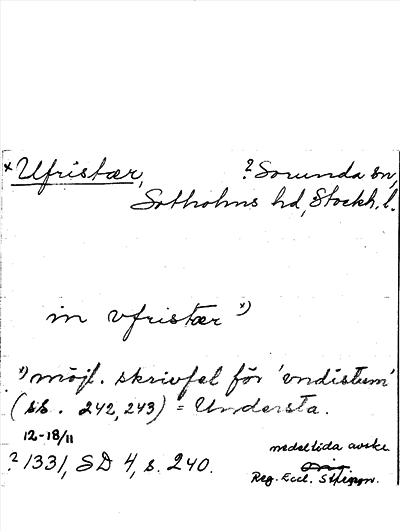 *Ufristær, ? Sorunda sn,
Sotholms hd, Stockh. l.
in vfristær *)
*) möjl. skrivfel för 'vndistum'
(ss. 242, 243) = Understa.
12-18/11
? 1331, SD 4, s. 240.
medeltida avskr.
Reg. Eccl.